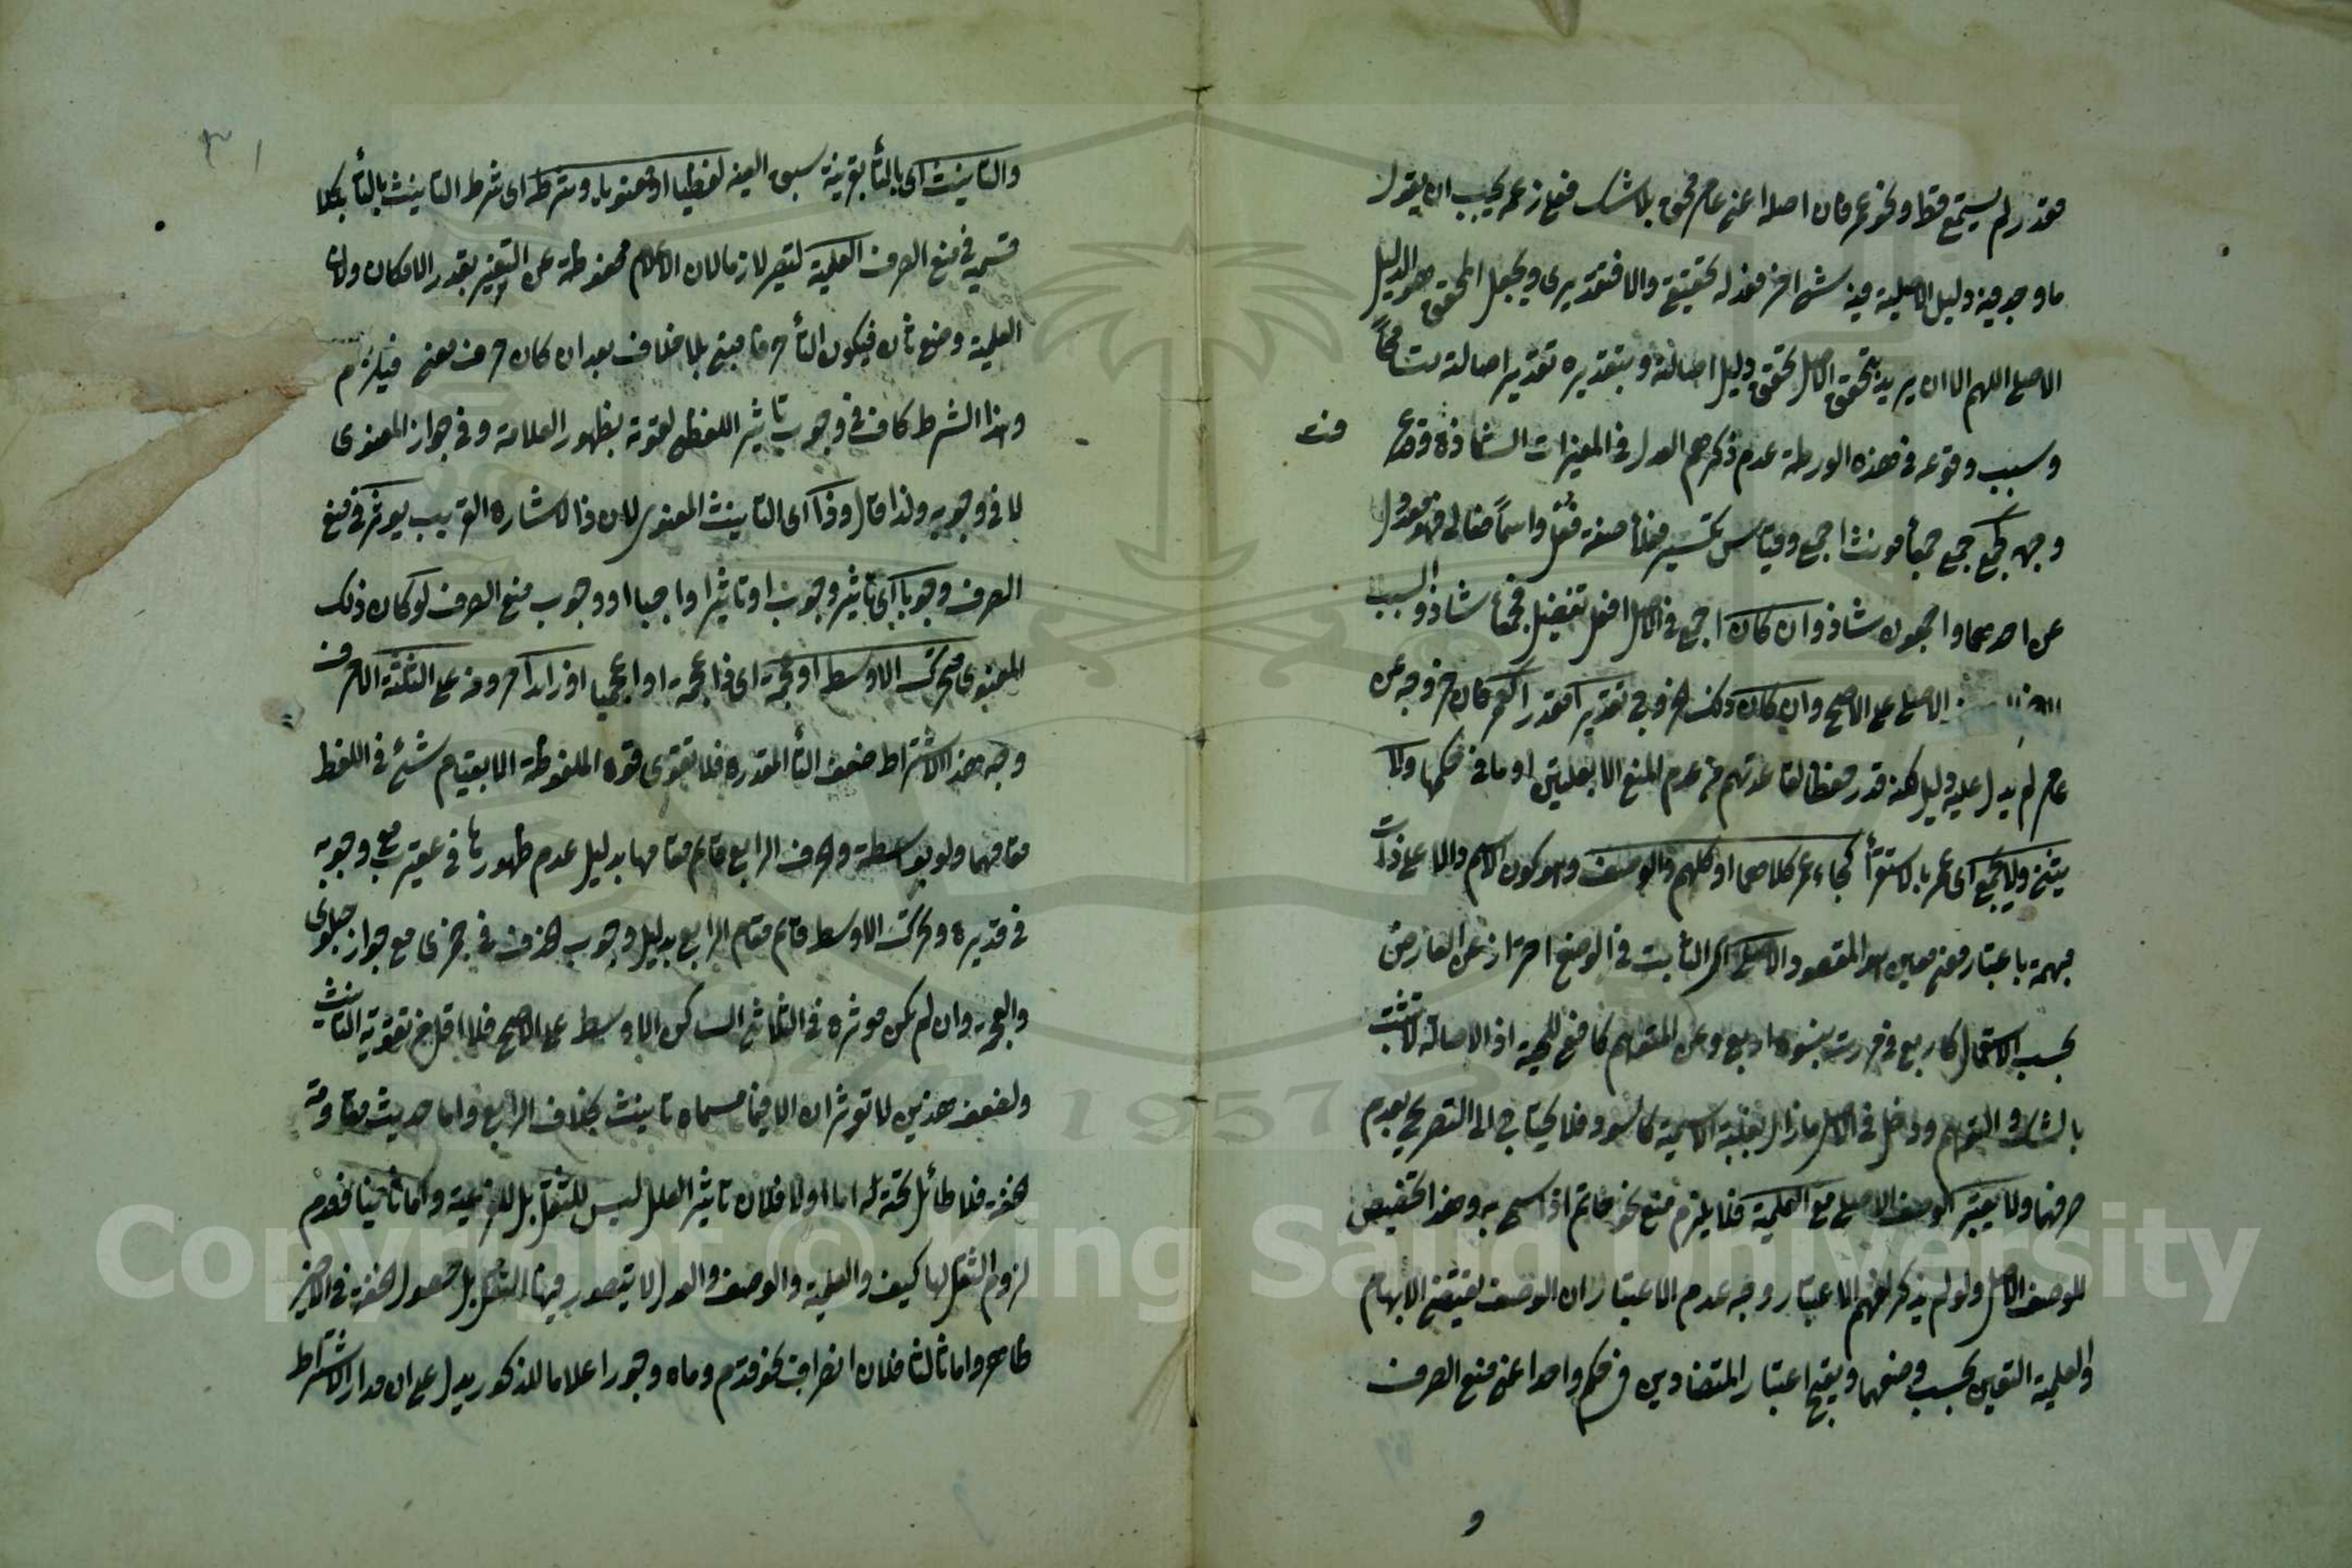 مقدر لم يستمع قط او نحو عمر فان اصله اعنى عامر محقق بلا شك فعلى زعمه يجب ان يقول
ما وجد فيه دليل الاصلية فيه شئ اخر فعدله تحقيقى والا فتقديرى ويجعل المحقق هو الدليل
الاصلى اللهم الا ان يريد بتحقق الاصل تحقق دليل اصالته وبتقديره تقدير اصالته تسامحاً
وسبب وقوعه فى هذه الورطة عدم ذكرهم العدل فى المغيرات الشاذة وقوع
منه
وجه جمع جمع جمعاء مونث اجمع وقياس تكسير فعلاء صفة فُعْل واسماً فعالى فهو معدول
عن احدهما واجمعون شاذ وان كان اجمع فى الاصل افعل تفضيل فجمعاء شاذ والسبب
الاصلى على الاصح وان كان ذلك الخروج تقديرا كعمر فان خروجه عن
عامر لم يدل عليه دليل لكنه قدر حفظا لقاعدتهم من عدم المنع الا بعلتين او ما فى حكمها ولا
يثنى ولا يجمع اى عمر بالاستقراء كجاء عمر كلاهما او كلهم والوصف وهو كون الاسم دالا على ذات
مبهمة باعتبار معنى معين هو المقصود الاصلى اى الثابت فى الوضع احتراز عن العارض
بحسب الاستعمال كاربع فى مررت بنسوة اربع وعن المتوهم كافعى للحية اذ الاصالة لا تثبت
بالشك والتوهم ودخل فى الاصل ما زال بغلبة الاسمية كاسود فلا يحتاج الى التصريح بعدم
صرفها ولا يعتبر الوصف الاصلى مع العلمية فلا يلزم منع نحو حاتم اذا سمى به وهذا تخصيص
للوصف الاصل ولو لم يذكر لفهم الاعتبار وجه عدم الاعتبار ان الوصف يقتضى الابهام
والعلمية التعين بحسب وضعهما ويقبح اعتبار المتضادين فى حكم واحد اعنى منع الصرف
و
والتانيث اى بالتاء بقرينة سبق الغير لفظيا او معنويا وشرطه اى شرط التانيث بالتاء بكلا
قسميه فى منع الصرف العلمية لتصير لازما لان الاعلام محفوظة عن التغير بقدر الامكان ولان
العلمية وضع ثان فيكون التاء حرفا مبنى بلا خلاف بعد ان كان حرف معنى فيلزم
وهذا الشرط كاف فى وجوب تاثير اللفظى لقوته بظهور العلامة وفى جواز المعنوى
لا فى وجوبه ولذا قال وذا اى التانيث المعنوى لان ذا لاشارة القريب يوثر فى منع
الصرف وجوبا اى تاثير وجوب او تاثيرا واجبا او وجوب منع الصرف لو كان ذلك
المعنوى متحرك الاوسط او عجمة اى ذا عجمة او اعجميا او زائدا حروفه على الثلثة الاحرف
وجه هذا الاشتراط ضعف التاء المقدرة فلا تقوى قوة الملفوظة الا بقيام شئ فى اللفظ
مقامهما ولو بواسطة والحرف الرابع قائم مقامها بدليل عدم ظهورها فى عقيرب مع وجوبه
فى قديرة وتحرك الاوسط قائم مقام الرابع بدليل وجوب الحذف فى جمزى مع جواز حبلوى
والعجمة وان لم يكن موثرة فى الثلاثى الساكن الاوسط على الاصح فلا اقل من تقوية التانيث
ولضعف هذين لا توثران الا فيما مسماه تانيث بخلاف الرابع واما حديث مقاومة
الخفة فلا طائل تحته له اما اولا فلان تاثير العلل ليس للثقل بل للفرعية واما ثانيا فعدم
لزوم الثقل لها كيف والعلمية والوصف والعدل لا يتصور فيها الثقل بل حصول الخفة فى الاخير
ظاهر واما ثالثا فلان انصراف نحو قدم وماه وجور اعلاما للمذكور يدل على ان مدار الاشتراط